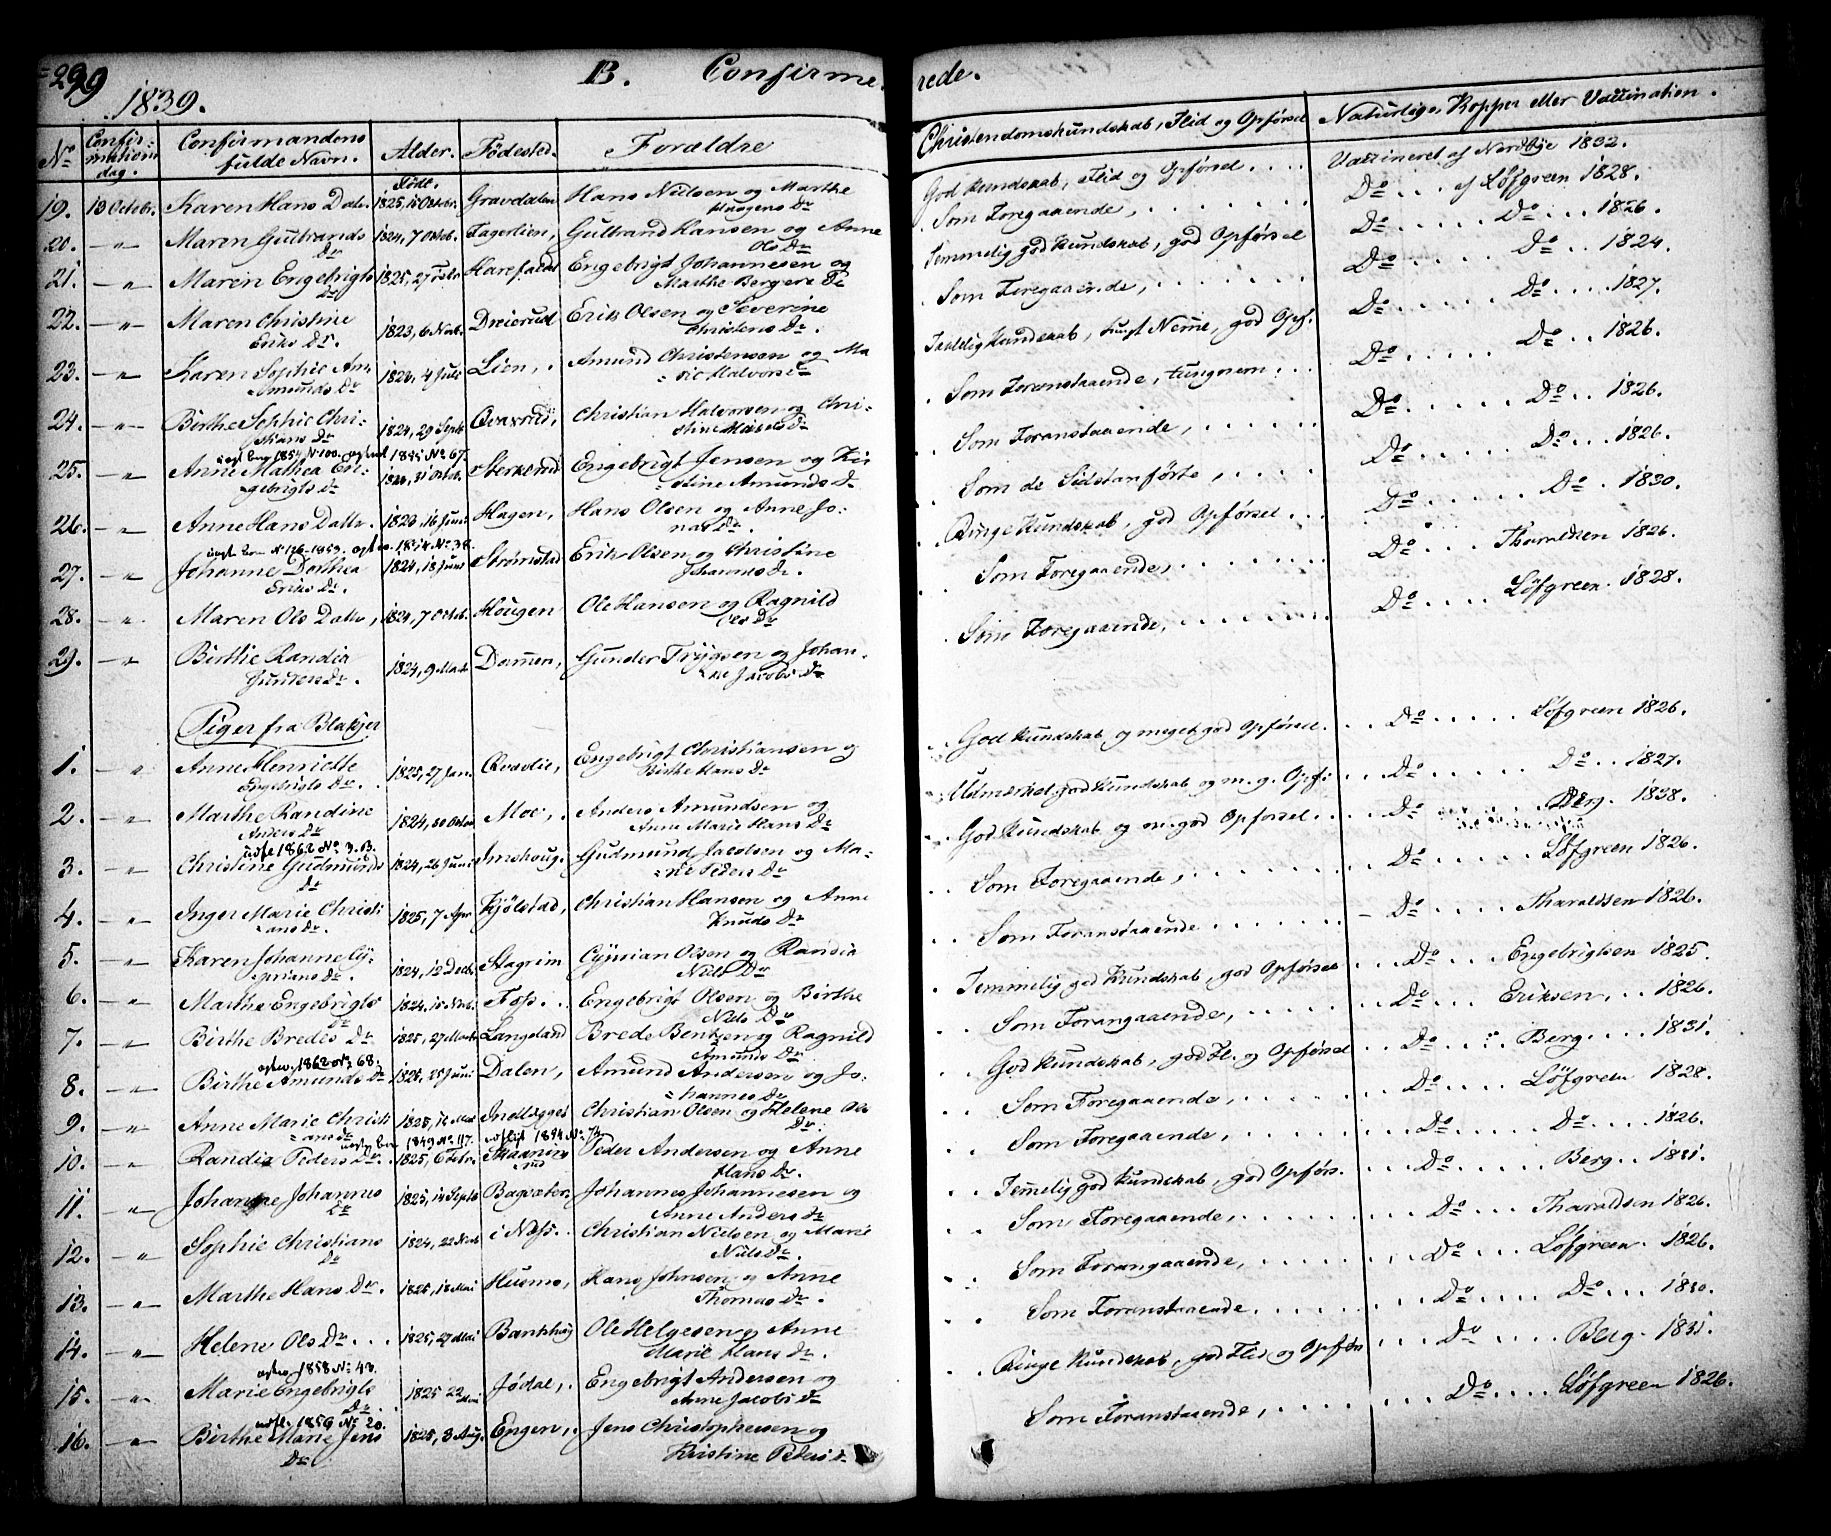 299
B. Confirmerede.
1839.
No
Confirmations dag.
Confirmandens fulde Navn.
Alder.
Fødested.
Forældre
Christendomskundskab, Flid og Opførsel
Naturlige Kopper eller Vaccination.
født.
19. 13 Octobr. Karen Hans Datr. 1825, 15 Octobr. Gravdalen Hans Nielsen og Marthe Haagens Dr God Kundskab, Flid og Opførsel .... Vaccineret af Nordbye 1832.
20. —"— Maren Gulbrands Dr 1824, 7 Octob. Fagerlien, Gulbrand Hansen og Anne Ols Dr Som Foregaaende, ....... Do ... af Løfgreen 1828.
21. —"— Maren Engebrigts Dr Engebrigt Johannesen og Marthe Bergere Temmelig god Kundskab, god Opførsel Do ..... Do ... 1826.
22. —"— Maren Christine Eriks Dr. 1823, 6 Novb. Dreierud Erik Olsen og Severine Christens Dr. Som Foregaaende, ....... Do ..... Do .. 1824.
23. —"— Karen Sophie Amunds Dr 4 Juli Lien, . Amund Christensen og Kundskab, tungt Nemme, god Opf. Do ..... Do ... 1827.
24. —"— Birthe Sophie Christians Dr 1824, 29 Septb Qvaxrud, Christian Halvorsen og Christine Dr Som Foranstaaende, tungnem. .. Do ..... Do ... 1826.
25. —"— Anne Mathea Engebrigts Dr Engebrigt Jensen og Kistine Amunds Dr Som Foranstaaende, ..... Do ..... Do ... 1826.
26. —"— Anne Hans Datr. 1823, 16 Juni Hagen, Hans Olsen og Anne Jonas Dr. Som de Sidstanførte, ..... Do ..... Do ... 1826.
27. —"— Johanne Dorthea Eriks Dr. 1824, 18 Juni Strømstad Erik Olsen og Christine Johannes Dr. Ringe Kundskab, god Opførsel ... Do ..... Do .. 1830.
28. —"— Maren Ols Datr, 1824, 7 Octob. Hougen Ole Hansen og Ragnild Ols Dr Som Foregaaende, ....... Do ... Tharaldsen 1826.
29. —"— Birthe Randia Gunders Dr. 1824, 9 Dammen, Gunder Trygsen og Johanne Jacobs Dr Som Foregaaende, ....... Do .... Løfgreen. 1828.
Piger fra Blakjer
1. —"— Anne Henriette Engebrigts Dr. 1825, 27 Jan. Qvavlie, Engebrigt Christiansen og Birthe Hans Dr God Kundskab og meget god Opførsel. .. Do ..... Løfgreen 1826.
2. —"— Marthe Randine Anders Dr 1824, 30 Moe, . Anders Amundsen og Anne Marie Hans Dr Udmærket god Kundskab og m. g. Opf. .. Do ..... Do .. 1827.
3. —"— Christine Gudmunds Dr 1824, 26 Juni Imshoug. Gudmund Jacobsen og Ma- Peders Dr God Kundskab og m. god Opførsel .... Do Berg. 1838.
4. —"— Inger Marie Christians Dr. 1825, 7 Apr Kjølstad, Christian Hansen og Anne Knuds Dr Som Foregaaende, ....... Do ..... Løfgreen 1826.
5. —"— Karen Johanne Cyprians Dr. 1824, 12 Decb. Cyprian Olsen og Randia Niels Dr Som Foranstaaende ....... Do .... Tharaldsen 1826.
6. —"— Marthe Engebrigts Dr Foss. .. Engebrigt Olsen og Birthe Niels Dr Temmelig god Kundskab, god Opførsel ... Do .... Engebrigtsen 1825.
7. —"— Birthe Bredes Dr 1825, 27 Langeland Brede Bentzen og Ragnild Amunds Dr. Som Forangaaende, ....... Do .... Eriksen, ... 1826.
8. —"— Birthe Amunds Dr 25 Juni Dalen, Amund Andersen og Johannes Dr God Kundskab, god Fl. og Opførsel .. Do ... Berg. ... 1831.
9. —"— Anne Marie Christians Dr Christian Olsen og Helene Ols Dr. Som Foregaaende, ....... Do .... Løfgreen 1828.
10. —"— Randia Peders Dr. 1825, 6 Febr. Peder Andersen og Anne Hans Dr. Som Foregaaende, ....... Do .... Do ... 1826.
11. —"— Johanne Johannes Dr 1825, 14 Septb Johannes Johannesen og Anne Anders Dr Temmelig god Kundskab, god Opførs. ... Do .... Berg .. 1831.
12. —"— Sophie Christians Dr 1824, 22 i Næss. . Christian Nielsen og Marie Niels Dr. Som Foregaaende, ....... Do ... Tharaldsen 1826.
13. —"— Marthe Hans Dr 1825, 18 Mai Husmo, Hans Johnsen og Anne Thomas Dr. Som Forangaaende, ....... Do ... Løfgreen. 1826.
14. —"— Helene Ols Dr. ... 1825, 27 Mai Ole Helgesen og Anne Marie Hans Dr. Som Foranstaaende. ....... Do .... Do .. 1830.
15. —"— Marie Engebrigts Dr. 1825 22 Mai Jødal, . Engebrigt Andersen og Anne Jacobs Dr Ringe Kundskab, god Flid og Opførs ... Do .... Berg. 1831.
16. —"— Birthe Marie Jens Dr 1825, 3 Aug. Engen, . Jens Christophersen og Kristine Peders Dr Som Foranstaaende, ....... Do .... Løfgreen 1826.